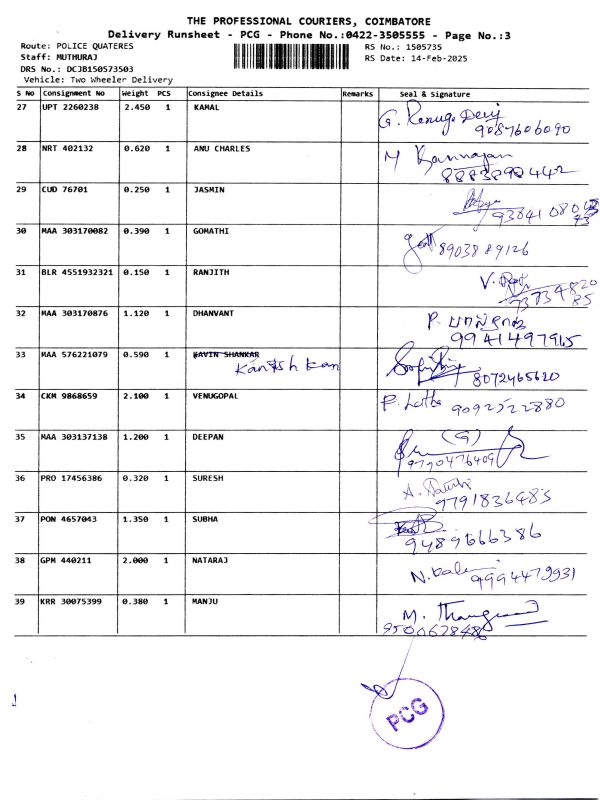 THE PROFESSIONAL COURIERS, COIMBATORE
Delivery Runsheet - PCG - Phone No.:0422-3505555 - Page No.:3
Route: POLICE QUATERES RS No.: 1505735
Staff: MUTHURAJ RS Date: 14-Feb-2025
DRS No.: DCJB150573503
Vehicle: Two Wheeler Delivery
S No Consignment No Weight PCS Consignee Details Remarks Seal & Signature
27 UPT 2260238 2.450 1 KAMAL G. Renuga Devi
9087606090
28 NRT 402132 0.620 1 ANU CHARLES M Kannajan
8883890442
29 CUD 76701 0.250 1 JASMIN
30 MAA 303170082 0.390 1 GOMATHI 8903889126
31 BLR 4551932321 0.150 1 RANJITH V.
32 MAA 303170876 1.120 1 DHANVANT P.
9941497915
33 MAA 576221079 0.590 1 KAVIN SHANKAR
Kanish kan 8072465620
34 CKM 9868659 2.100 1 VENUGOPAL P. Latha 9092522880
35 MAA 303137138 1.200 1 DEEPAN (G)
9790476409
36 PRO 17456386 0.320 1 SURESH A.
9791836485
37 PON 4657043 1.350 1 SUBHA
9489666386
38 GPM 440211 2.000 1 NATARAJ N. 9994479931
39 KRR 30075399 0.380 1 MANJU M.
9500628486
PCG